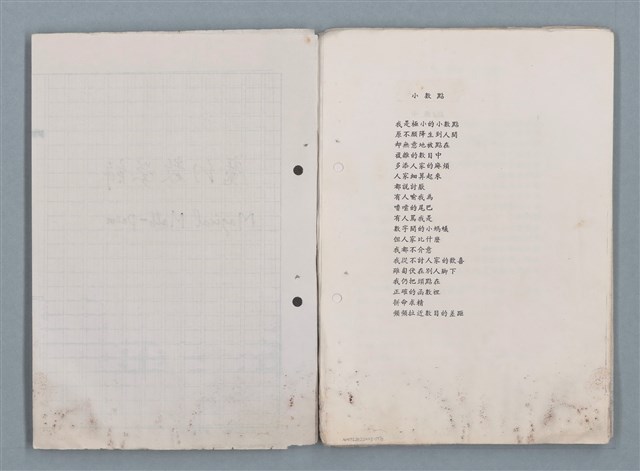 小數點
我是極小的小數點
原不願降生到人間
却無意地被點在
複雜的數目中
多添人家的麻煩
人家細算起來
都說討厭
有人喻我為
嘈嘈的尾巴
有人罵我是
數字間的小螞蟻
但人家比什麼
我都不介意
我説不討人家的歡喜
雖匍伏在別人腳下
我仍把頭點在
正確的函數裡
拼命求精
頻頻拉近數目的差距